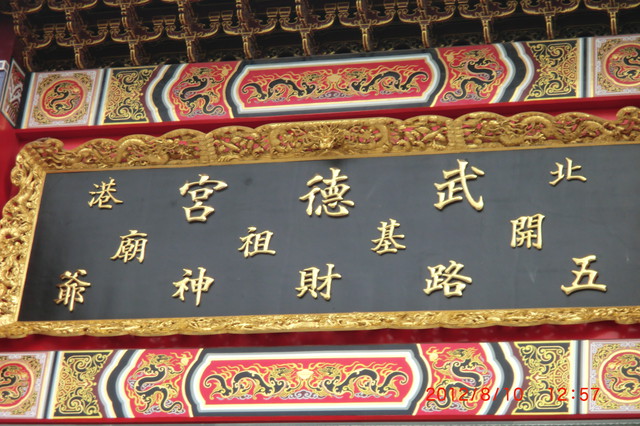 北武德宮港
開基祖廟
五路財神爺
2012/8/10 12:57